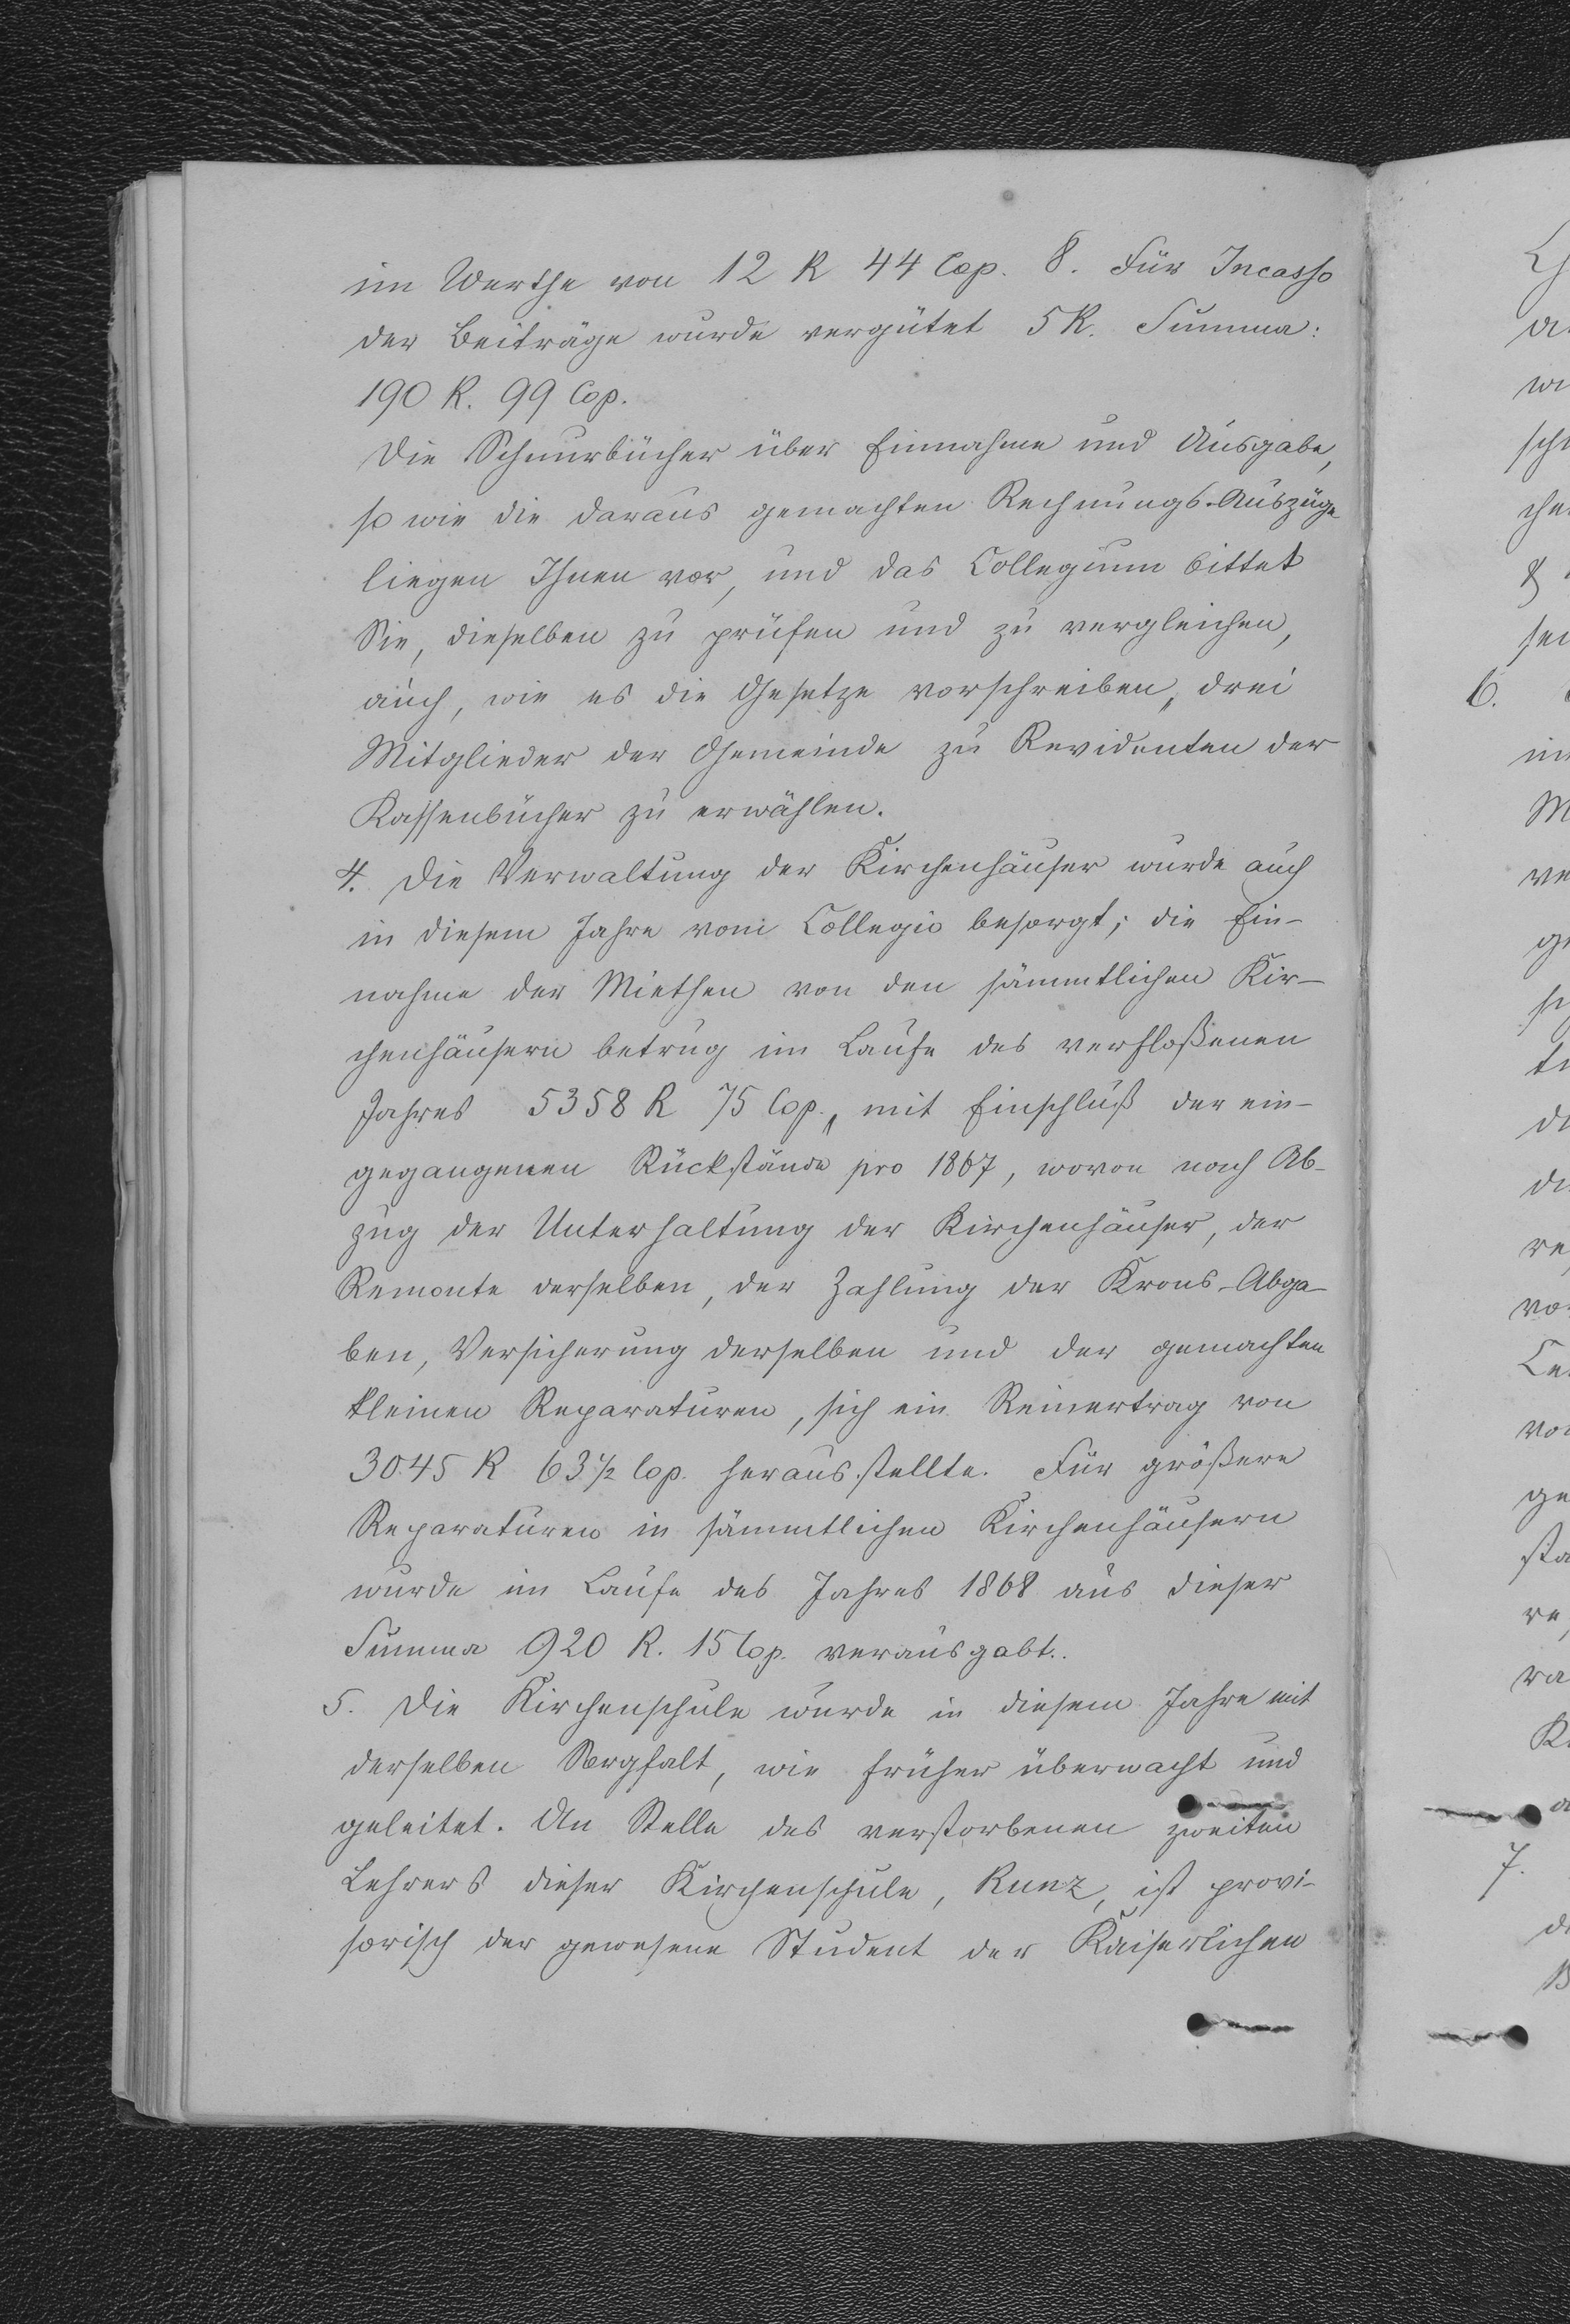 im Werthe von 12 R 44 Cop. 8. Für Incasso
der Beiträge wurde vergütet 5 R. Summa:
190 R. 99 Cop.
Die Schnurbücher über Einnahme und Ausgabe,
so wie die daraus gemachten Rechnungs-Auszüge
liegen Ihnen vor, und das Collegium bittet
Sie, dieselben zu prüfen und zu vergleichen,
auch, wie es die Gesetze vorschreiben, drei
Mitglieder der Gemeinde zu Revidenten der
Kassenbücher zu erwählen.
4. Die Verwaltung der Kirchenhäuser wurde auch
in diesem Jahre vom Collegio besorgt; die Ein-
nahme der Miethen von den sämmtlichen Kir-
chenhäusern betrug im Laufe des verfloßenen
Jahres 5358 R 75 Cop., mit Einschluß der ein-
gegangenen Rückstände pro 1867, wovon nach Ab-
zug der Unterhaltung der Kirchenhäuser, der
Remonte derselben, der Zahlung der Krons-Abga-
ben, Versicherung derselben und der gemachten
kleinen Reparaturen, sich ein Reinertrag von
3045 R 63½ Cop. herausstellte. Für größere
Reparaturen in sämmtlichen Kirchenhäusern
wurde im Laufe des Jahres 1868 aus dieser
Summa 920 R. 15 Cop. verausgabt.
5. Die Kirchenschule wurde in diesem Jahre mit
derselben Sorgfalt, wie früher überwacht und
geleitet. An Stelle des verstorbenen zweiten
Lehrers dieser Kirchenschule, Kunz, ist provi-
sorisch der gewesene Student der Kaiserlichen
6.
7.